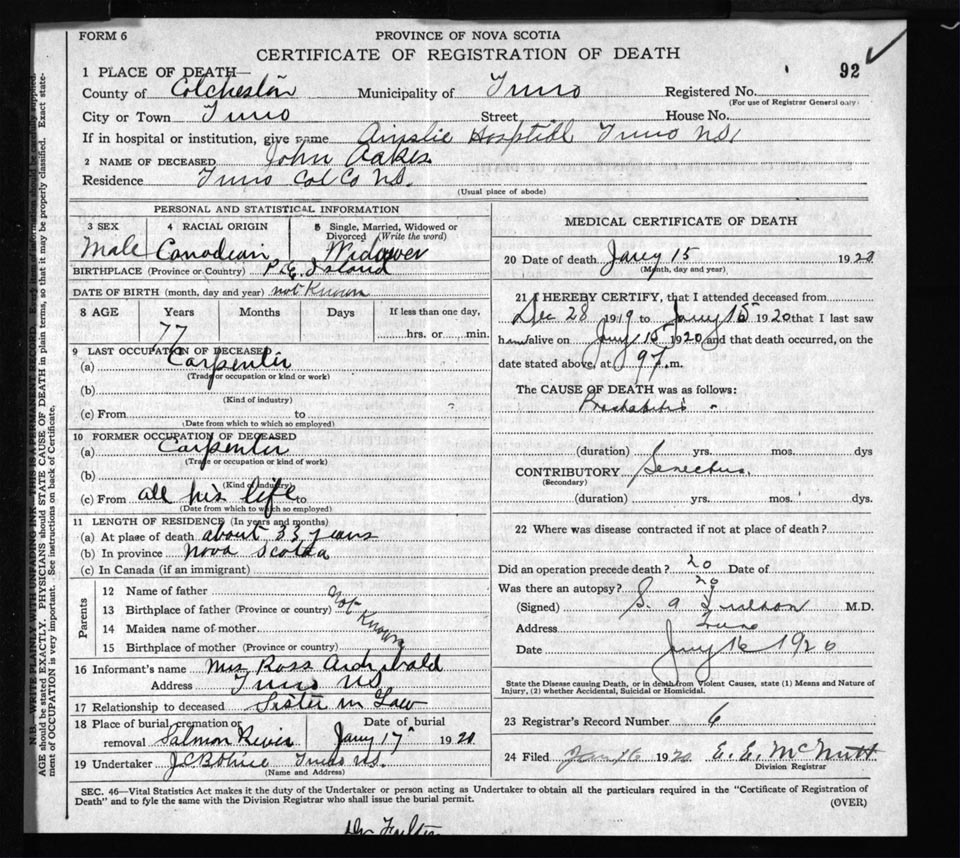 FORM 6
PROVINCE OF NOVA SCOTIA
CERTIFICATE OF REGISTRATION OF DEATH
92
1 PLACE OF DEATH—
County of Colchester Municipality of Truro Registered No.
(For use of Registrar General only)
City or Town Truro Street House No.
If in hospital or institution, give name Ainslie Hosptibl Truro NS,
2 NAME OF DECEASED John Oakes
Residence Truro Col Co NS.
(Usual place of abode)
PERSONAL AND STATISTICAL INFORMATION
3 SEX 4 RACIAL ORIGIN 5 Single, Married, Widowed or Divorced (Write the word)
Male Canadian Widower
BIRTHPLACE (Province or Country) P.E. Island
DATE OF BIRTH (month, day and year) not Known
8 AGE Years Months Days If less than one day,
77 hrs. or min.
9 LAST OCCUPATION OF DECEASED
(a) Carpenter
(Trade or occupation or kind or work)
(b)
(Kind of industry)
(c) From to
(Date from which to which so employed)
10 FORMER OCCUPATION OF DECEASED
(a) Carpenter
(Trade or occupation or kind of work)
(b)
(Kind of industry)
(c) From all his life to
(Date from which to which so employed)
11 LENGTH OF RESIDENCE (In years and months)
(a) At place of death about 33 years
(b) In province Nova Scotia
(c) In Canada (if an immigrant)
Parents
12 Name of father
13 Birthplace of father (Province or country)
14 Maiden name of mother
15 Birthplace of mother (Province or country)
Not Known
16 Informant's name Mrs Ross Archibald
Address Truro NS
17 Relationship to deceased Sister in Law
18 Place of burial, cremation or removal Salmon River
Date of burial
Jany 17 1920
19 Undertaker Truro NS.
(Name and Address)
MEDICAL CERTIFICATE OF DEATH
20 Date of death Jany 15 1920
(Month, day and year)
21 I HEREBY CERTIFY, that I attended deceased from
Dec 28 1919 to Jany 15 1920 that I last saw
h alive on Jany 15 1920 and that death occurred, on the
date stated above, at 9 m.
The CAUSE OF DEATH was as follows:
(duration) yrs. mos. days
CONTRIBUTORY Senectus.
(Secondary)
(duration) yrs. mos. dys.
22 Where was disease contracted if not at place of death?
Did an operation precede death? Date of
Was there an autopsy?
(Signed) S. M.D.
Address
Date Jany 16 1920
State the Disease causing Death, or in death from Violent Causes, state (1) Means and Nature of Injury, (2) whether Accidental, Suicidal or Homicidal.
23 Registrar's Record Number 6
24 Filed Jan 16 1920 E. E. McNutt
Division Registrar
SEC. 46—Vital Statistics Act makes it the duty of the Undertaker or person acting as Undertaker to obtain all the particulars required in the "Certificate of Registration of
Death" and to fyle the same with the Division Registrar who shall issue the burial permit.
(OVER)
N.B.—WRITE PLAINLY WITH UNFADING INK—THIS IS A PERMANENT RECORD. Every item of information should be carefully supplied.
AGE should be stated EXACTLY. PHYSICIANS should STATE CAUSE OF DEATH in plain terms, so that it may be properly classified. Exact state-
ment of OCCUPATION is very important. See instructions on back of Certificate.